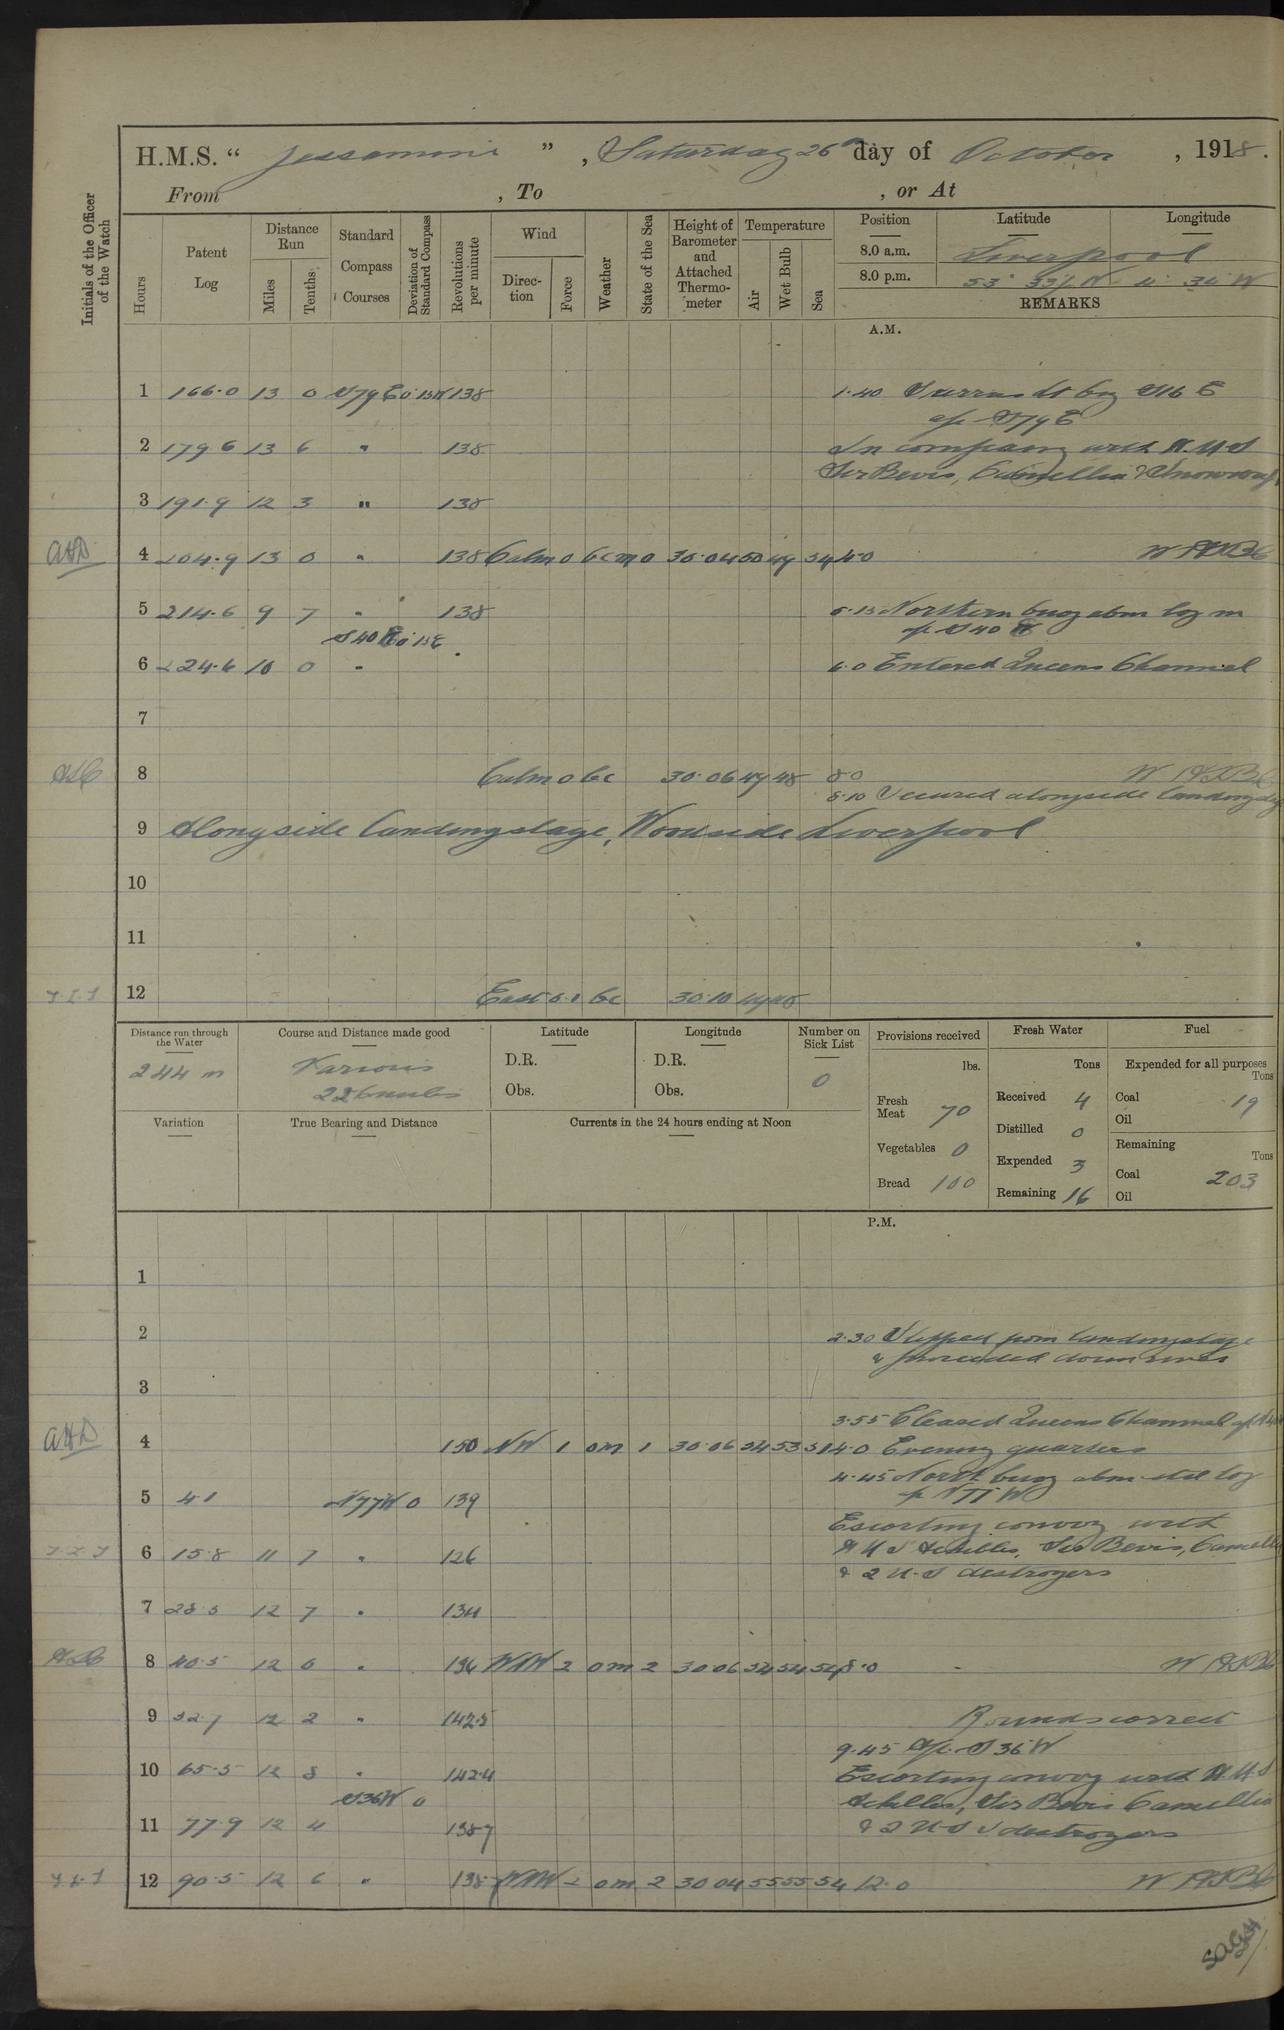 H.M.S. " Jessamine ", Saturday 26th day of October, 1918.
From , To , or At
Initials of the Officer of the Watch
Hours
Patent Log
Distance Run
Miles
Tenths
Standard Compass Courses
Deviation of Standard Compass
Revolutions per minute
Wind
Direction
Force
Weather
State of the Sea
Height of Barometer and Attached Thermometer
Temperature
Air
Wet Bulb
Sea
Position Latitude Longitude
8.0 a.m. Liverpool
8.0 p.m. 53° N 4° W
REMARKS
A.M.
1 166.0 13 0 S79E 138 1.40
a/c S79E
2 179 6 13 6 " 138 In company with H.M.S
Sir Bevis, Camellia & Snowdrop
3 191.9 12 3 " 138
AHD 4 204.9 13 0 " 138 Calm 0 bcm 0 30.04 50 49 54 4.0
5 214.6 9 7 " 138 Northern buoy abm log in
S40E a/c S40E
6 224.6 10 0 " 6.0 Entered Queens Channel
7
8 Calm 0 bc 30.06 49 48 8.0
8.10 Secured alongside landing stage
9 Alongside landing stage, Woodside Liverpool
10
11
12 East 0.1 bc 30.10
Distance run through the Water
244 m
Course and Distance made good
Various
226 miles
Latitude
D.R.
Obs.
Longitude
D.R.
Obs.
Number on Sick List
0
Provisions received
lbs.
Fresh Meat 70
Vegetables 0
Bread 100
Fresh Water
Tons
Received 4
Distilled 0
Expended 3
Remaining 16
Fuel
Expended for all purposes
Tons
Coal 19
Oil
Remaining
Tons
Coal 203
Oil
Variation
True Bearing and Distance
Currents in the 24 hours ending at Noon
P.M.
1
2 2.30 Slipped from landing stage
& proceeded down river
3
3.55 Cleared Queens Channel
AHD 4 150 NW 1 om 1 30.06 54 53 51 4.0 Evening quarters
4.45 North buoy abm
5 4.1 N77W 0 139 a/c N77W
Escorting convoy with
6 15.8 11 7 " 126 HMS Achilles, Sir Bevis, Camellia
& 2 U.S destroyers
7 28.5 12 7 " 134
8 40.5 12 0 " 136 WNW 2 om 2 30 06 54 54 54 8.0
9 52.7 12 2 " 142.5 Rounds correct
9.45 A/c S36W
10 65.5 12 8 " 142.4 Escorting convoy with H.M.S
S36W 0 Achilles, Sir Bevis Camellia
11 77.9 12 4 138.7 & 2 U.S destroyers
12 90.5 12 6 " WNW 2 om 2 30 04 55 55 54 12.0